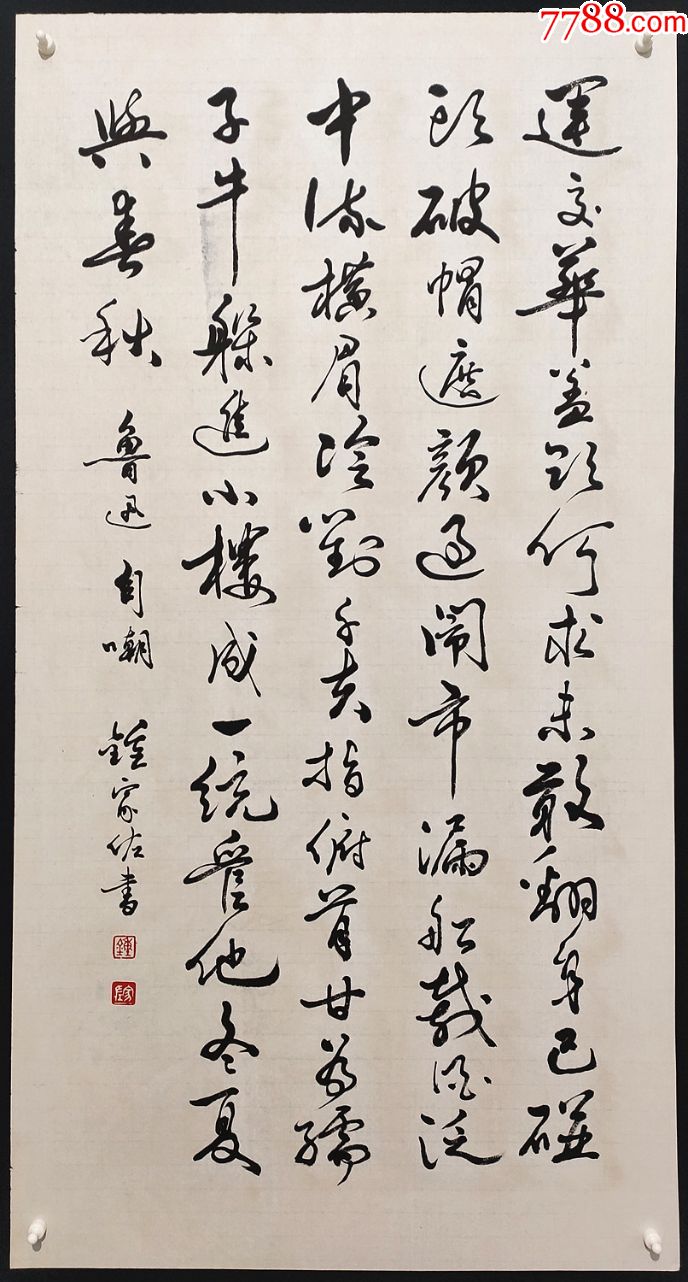 7788.com
運交華盖欲何求未敢翻身已碰
頭破帽遮顔過鬧市漏船載酒泛
中流横眉冷對千夫指俯首甘為孺
子牛躲進小樓成一統管他冬夏
與春秋 魯迅自嘲 鍾家佐書
鍾